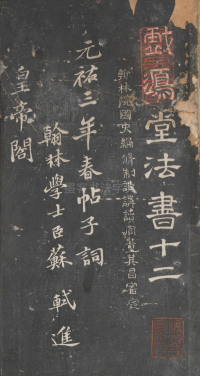 戲鴻堂法書十二
翰林院國史編修制誥講讀官董其昌審定
元祐三年春帖子詞
翰林學士臣蘇軾進
皇帝閣